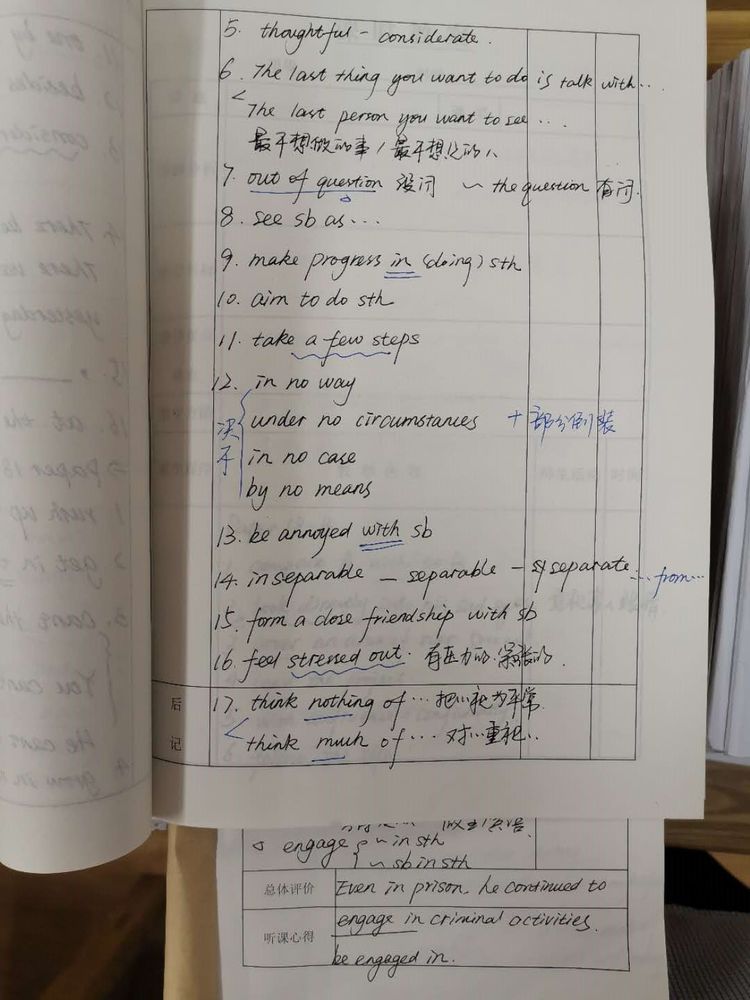 5. thoughtful - considerate.
6. The last thing you want to do is talk with...
The last person you want to see ...
最不想做的事 / 最不想见的人
7. out of question 没问 ~ the question 有问.
8. see sb as...
9. make progress in (doing) sth
10. aim to do sth
11. take a few steps
12. in no way
under no circumstances + 部分倒装
决不
in no case
by no means
13. be annoyed with sb
14. inseparable - separable - separate ... from...
15. form a close friendship with sb
16. feel stressed out. 有压力的.紧张的.
后记
17. think nothing of ... 把...视为平常
think much of ... 对...重视..
engage ~ in sth
~ sb in sth
总体评价
Even in prison, he continued to
听课心得
engage in criminal activities.
be engaged in.
one by
besides
consider
There
yesterday
15.
16. at the
paper 18
1. rush up
2. get in
3. can't
You can
He can
4. grow in